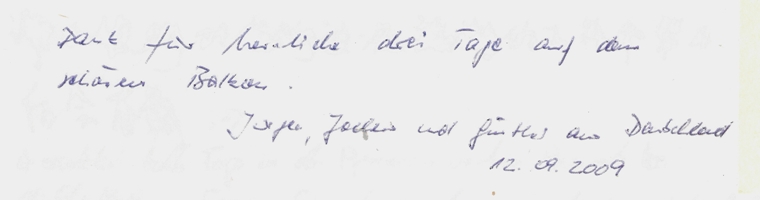 Dank für herrliche drei Tage auf dem
schönen Balkon.
Jürgen, Jochen und Günther aus Deutschland
12.09.2009